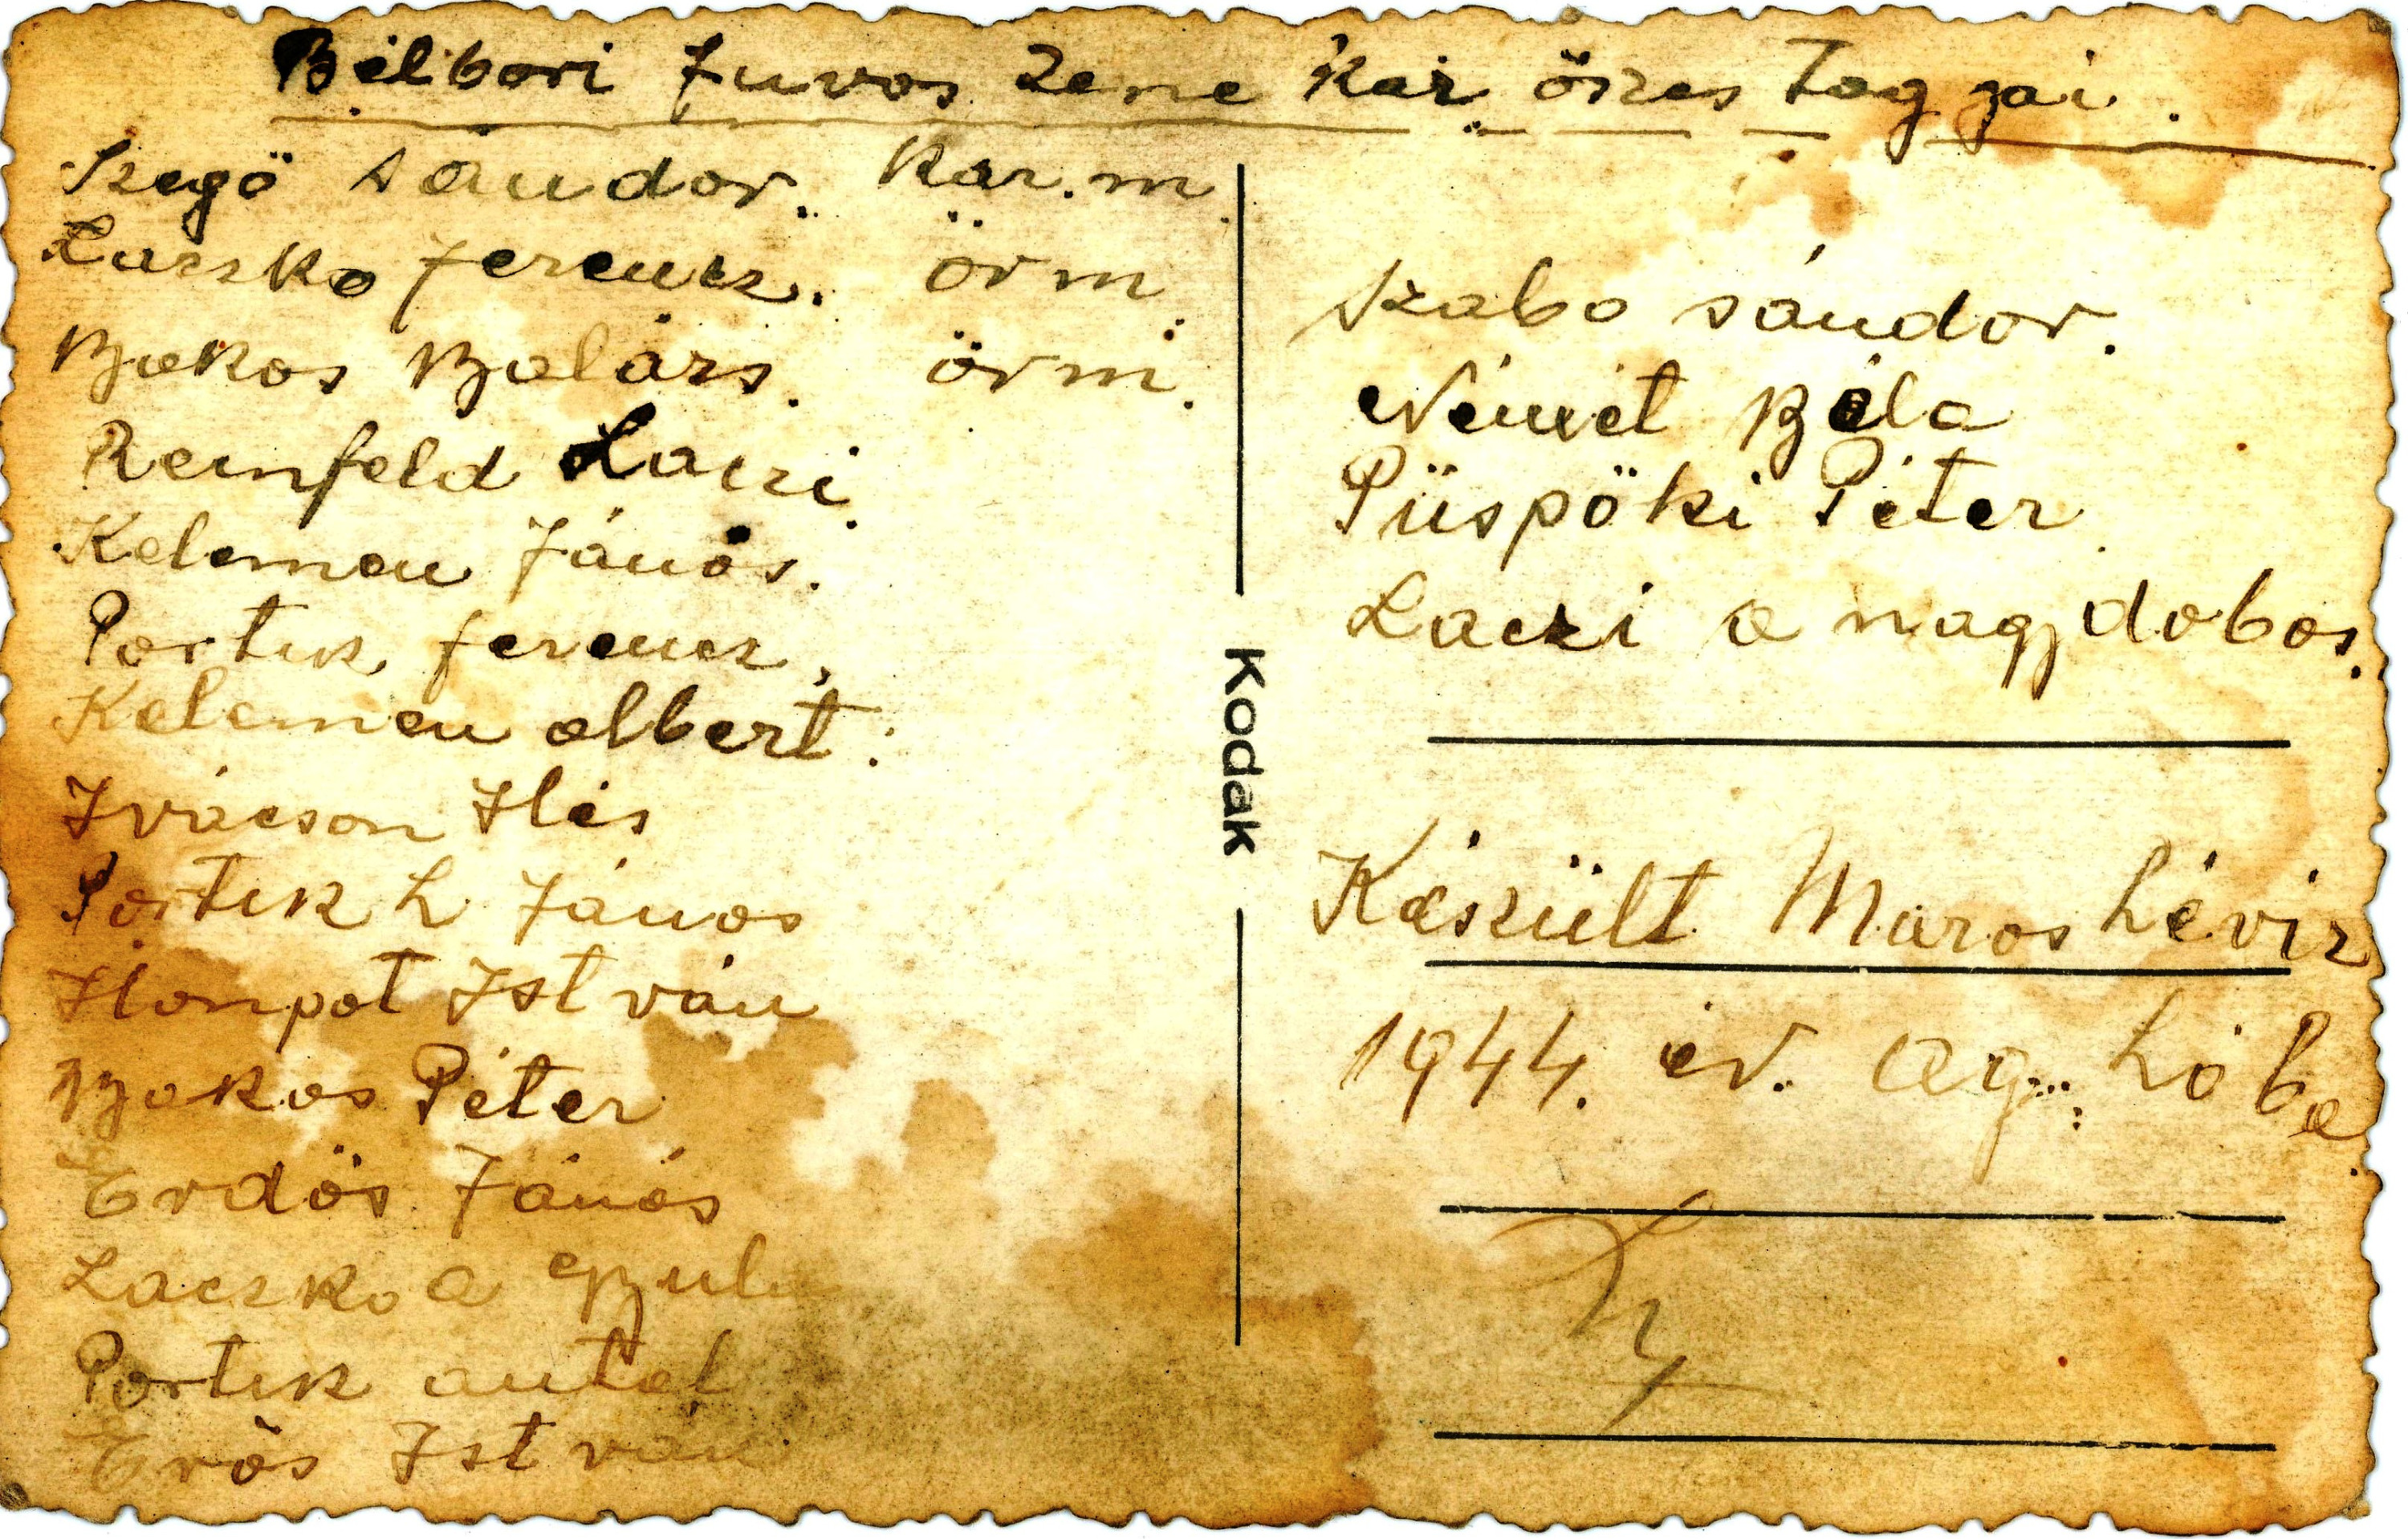 Bélbori fuvos Zene kar öszes Tag jai.
Szegö Sándor. Kar. m.
Laczko ferencz. örm
Bakos Balázs. örm.
Reinfeld Laczi.
Kelemen János.
Portik ferencz,
Kelemen albert.
Ivácson Ilés
Portik L János
Ilonpot István
Bakos Péter
Erdös János
Laczko a
Portik antal
Erös István
Szabo sándor.
Német Béla
Püspöki Péter
Laczi a nagy dobos.
Kodak
Készült Maros hévíz
1944. év. Ag. hó ba